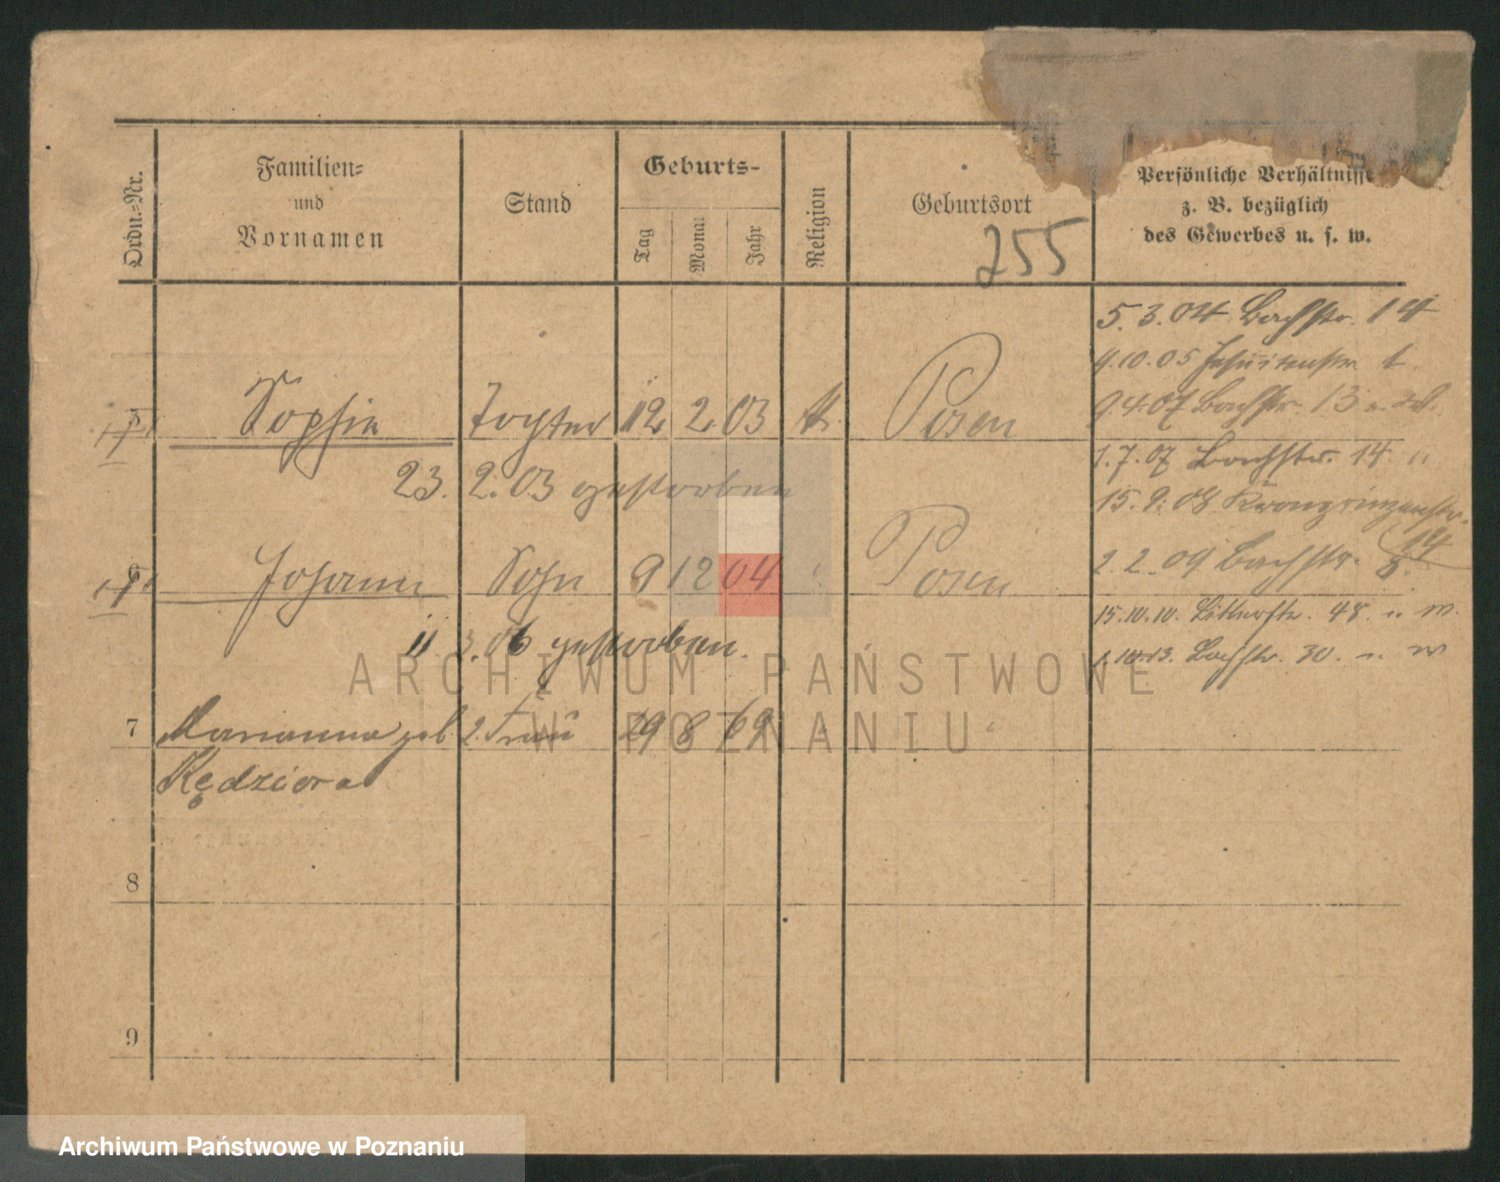 Ordn.-Nr.
Familien-
und
Vornamen
Stand
Geburts-
Tag
Monat
Jahr
Religion
Geburtsort
255
Persönliche Verhältnisse
z. B. bezüglich
des Gewerbes u. s. w.
5.3.04 Bachstr. 14
9.10.05 Jesuitenstr. 1.
9.4.07 Bachstr. 13
5 Sophie Tochter 12 2 03 k. Posen
1.7.07 Bachstr. 14 "
23. 2. 03 gestorben
15.9.08 Kronprinzenstr.
14
6 Johann Sohn 9 12 04 " Posen
2.2.09 Bachstr. 8.
15.10.10. Bitterstr. 48. u. W.
11. 3. 06 gestorben.
1.10.13. Bachstr. 30. u. W
ARCHIWUM PAŃSTWOWE
W POZNANIU
7 Marianna geb. 2. Frau 29 8 69
Kędziora
8
9
Archiwum Państwowe w Poznaniu